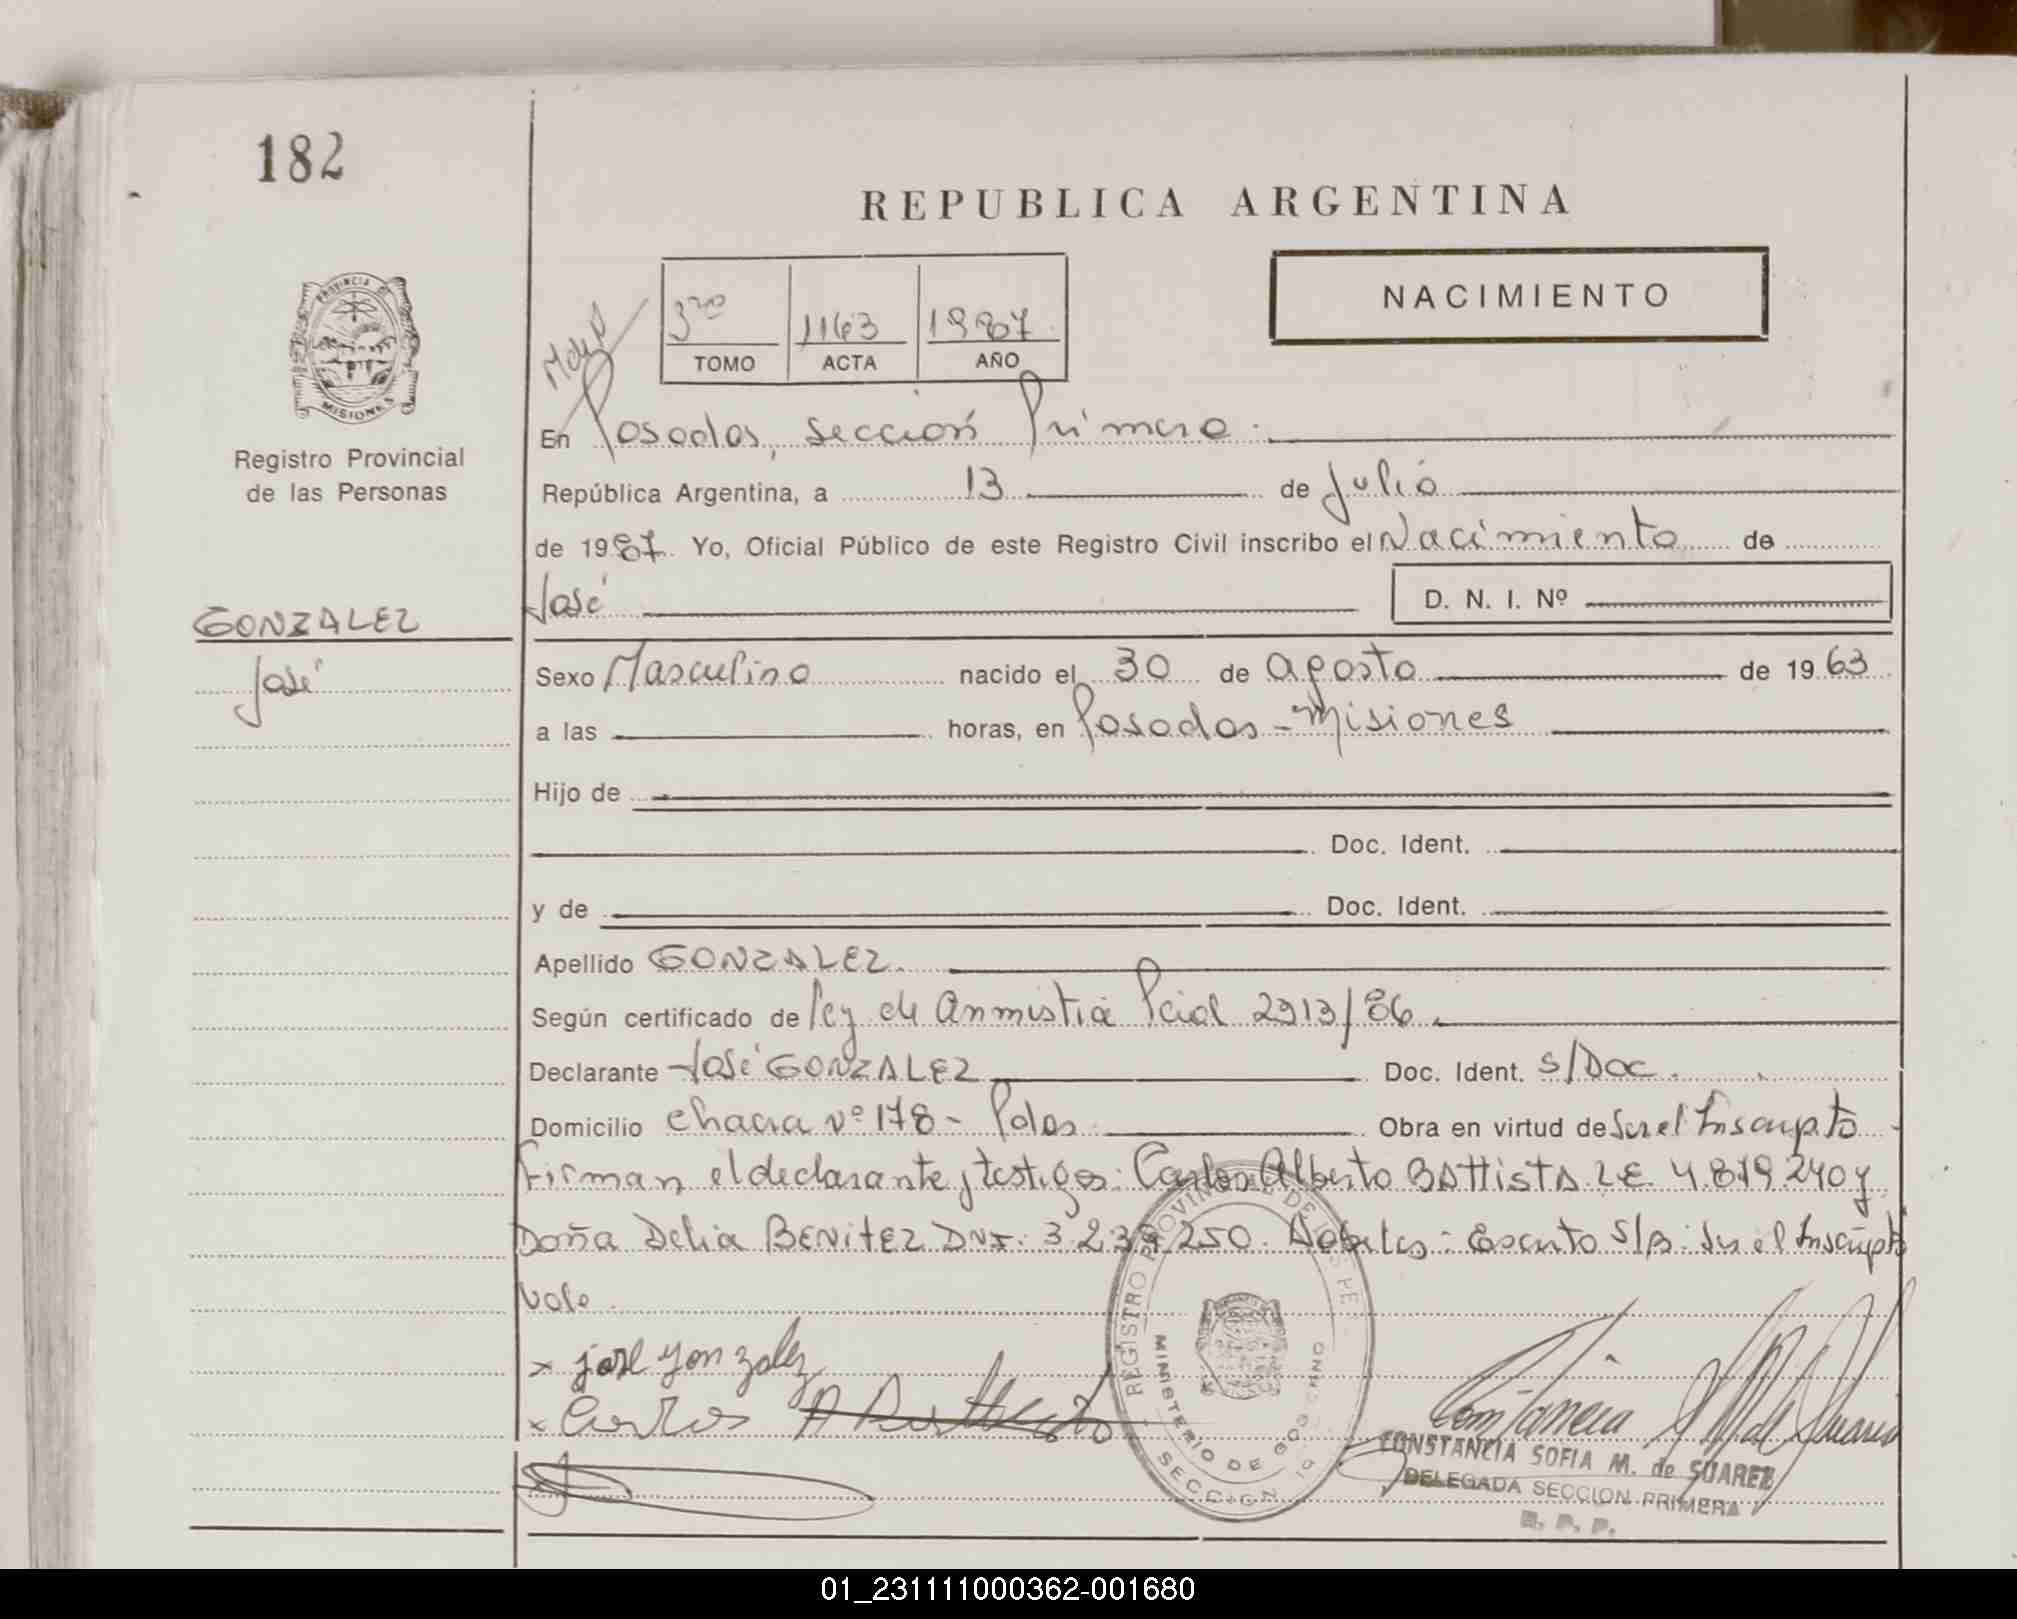 182
REPUBLICA ARGENTINA
NACIMIENTO
3ro 1163 1987
TOMO ACTA AÑO
PROVINCIA DE
MISIONES
Registro Provincial
de las Personas
En Posadas, sección Primera.
República Argentina, a 13 de Julio
de 1987. Yo, Oficial Público de este Registro Civil inscribo el Nacimiento de
José D. N. I. Nº
GONZALEZ
José
Sexo Masculino nacido el 30 de agosto de 1963
a las horas, en Posadas - Misiones
Hijo de
Doc. Ident.
y de Doc. Ident.
Apellido GONZALEZ.
Según certificado de ley de anmistia Pcial 2913/86.
Declarante José GONZALEZ Doc. Ident. S/Doc.
Domicilio Chacra nº 178 - Pdas. Obra en virtud de Ser el Inscripto
Firman el declarante y testigos: Carlos Alberto BATTISTA L.E. 4.819.240 y
Doña Delia BENITEZ DNI. 3.239.250. Escrito S/B: Ser el Inscripto
Vale
x jose gonzalez
x Carlos A
REGISTRO PROVINCIAL DE LAS PE
MINISTERIO DE GOBIERNO
SECCION 1a
CONSTANCIA SOFIA M. de SUAREZ
DELEGADA SECCION PRIMERA
R. P. P.
01_231111000362-001680